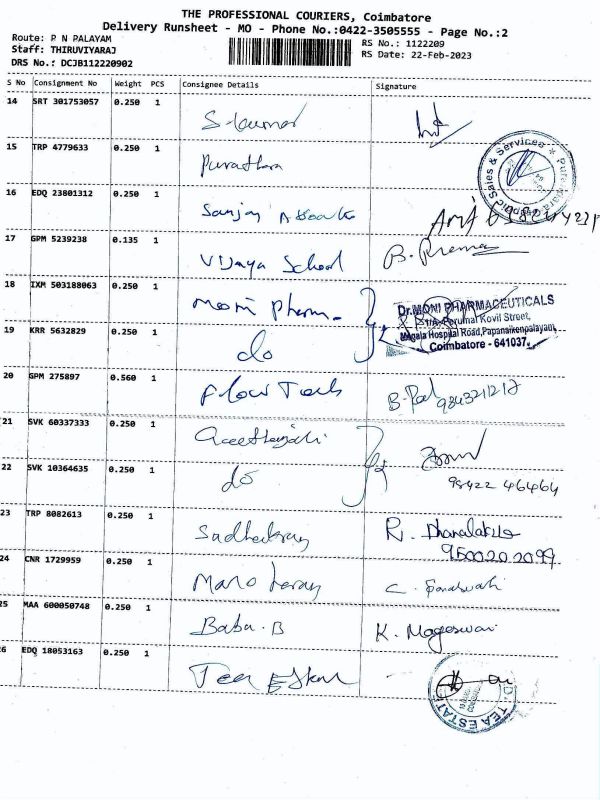 THE PROFESSIONAL COURIERS, Coimbatore
Delivery Runsheet - MO - Phone No.:0422-3505555 - Page No.:2
Route: P N PALAYAM
Staff: THIRUVIYARAJ
DRS No.: DCJB112220902
RS No.: 1122209
RS Date: 22-Feb-2023
S No Consignment No Weight PCS Consignee Details Signature
14 SRT 301753057 0.250 1 S-kumar
15 TRP 4779633 0.250 1
Sales & Services
16 EDQ 23801312 0.250 1 Sanjay
17 GPM 5239238 0.135 1 Vijaya School B. Prema
18 IXM 503188063 0.250 1 Moni Pharm
Dr.MONI PHARMACEUTICALS
1/A, Perumal Kovil Street,
Hospital Road, Papanaikenpalayam,
Coimbatore - 641037.
19 KRR 5632829 0.250 1 do
20 GPM 275897 0.560 1 Flow Tech 9843211217
21 SVK 60337333 0.250 1 Geethanjali
22 SVK 10364635 0.250 1 do 98422 46464
23 TRP 8082613 0.250 1 Sudhakaran R. Dhanalakshmi
9500202099
24 CNR 1729959 0.250 1
25 MAA 600050748 0.250 1 Baba. B K. Mageswari
26 EDQ 18053163 0.250 1 Tea
TEA ESTATE